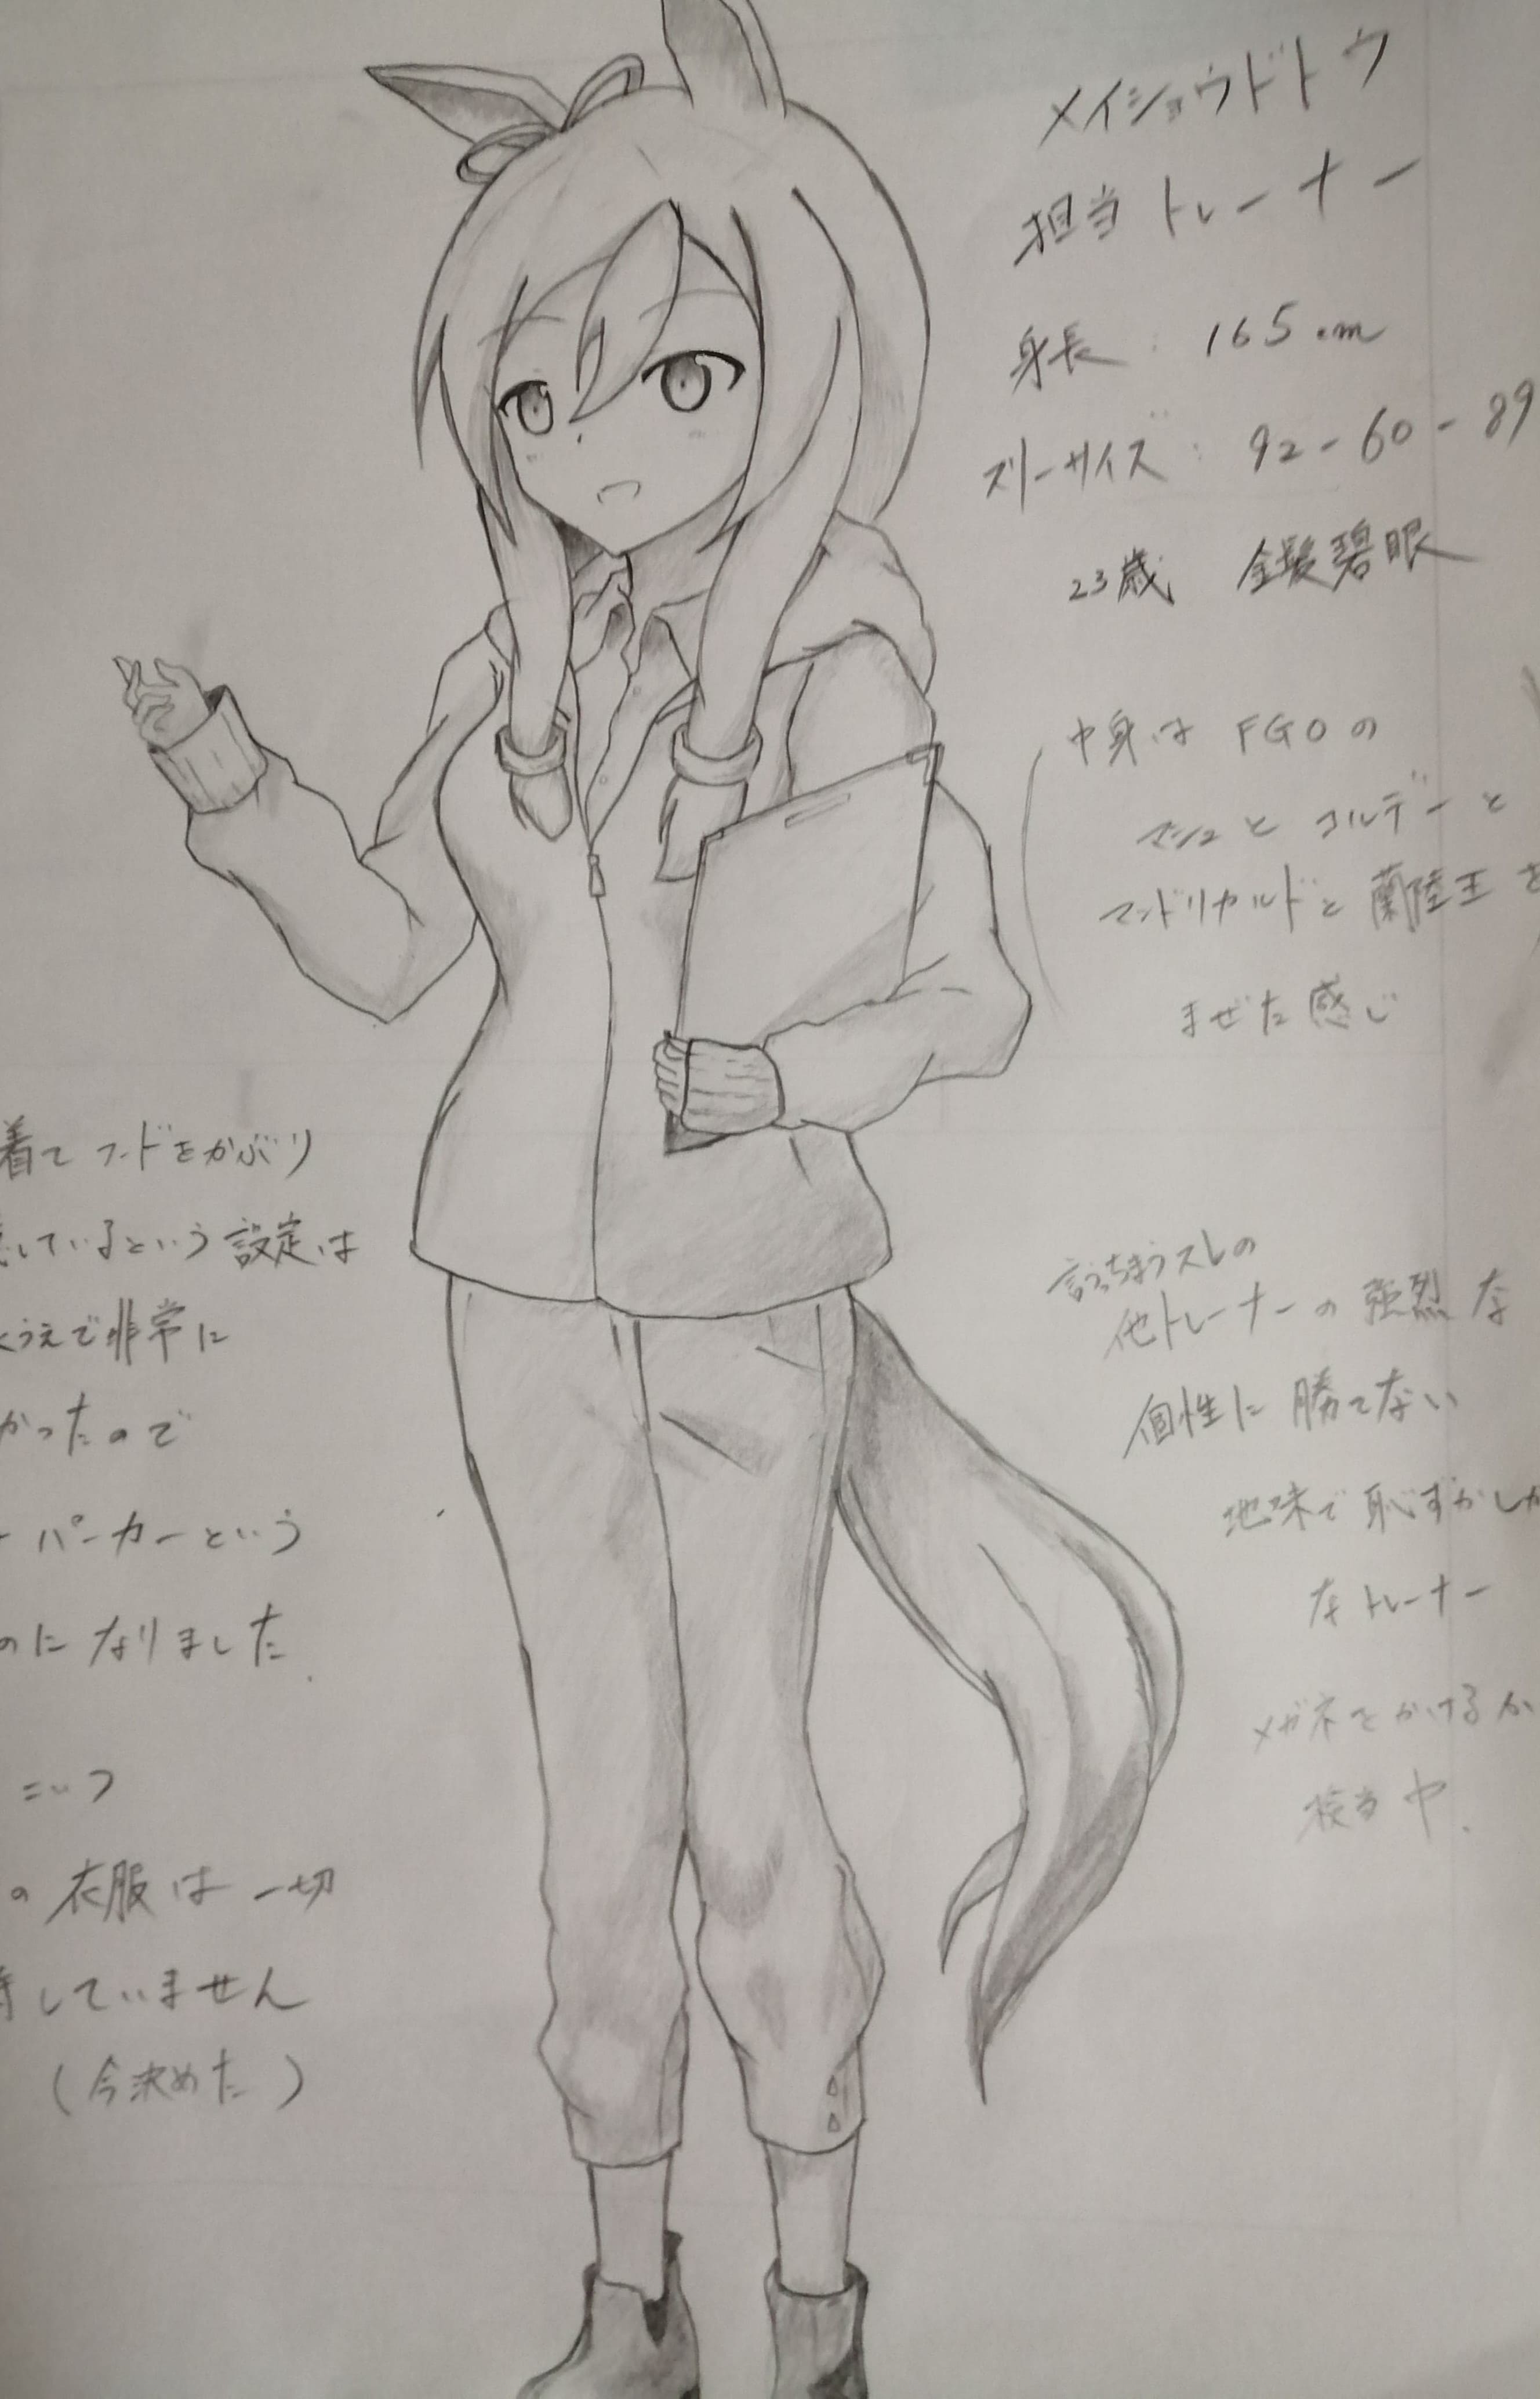 メイショウドトウ
担当トレーナー
身長：165cm
スリーサイズ：92-60-89
23歳 金髪碧眼
中身はFGOの
マシュとコルデーと
マンドリカルドと蘭陵王を
まぜた感じ
言っちまうスレの
他トレーナーの強烈な
個性に勝てない
地味で恥ずかしが
なトレーナー
メガネをかけるか
検当中.
着てフードをかぶり
しているという設定は
くうえで非常に
かったので
ーパーカーという
のになりました.
こいつ
の衣服は一切
していません
(今決めた)